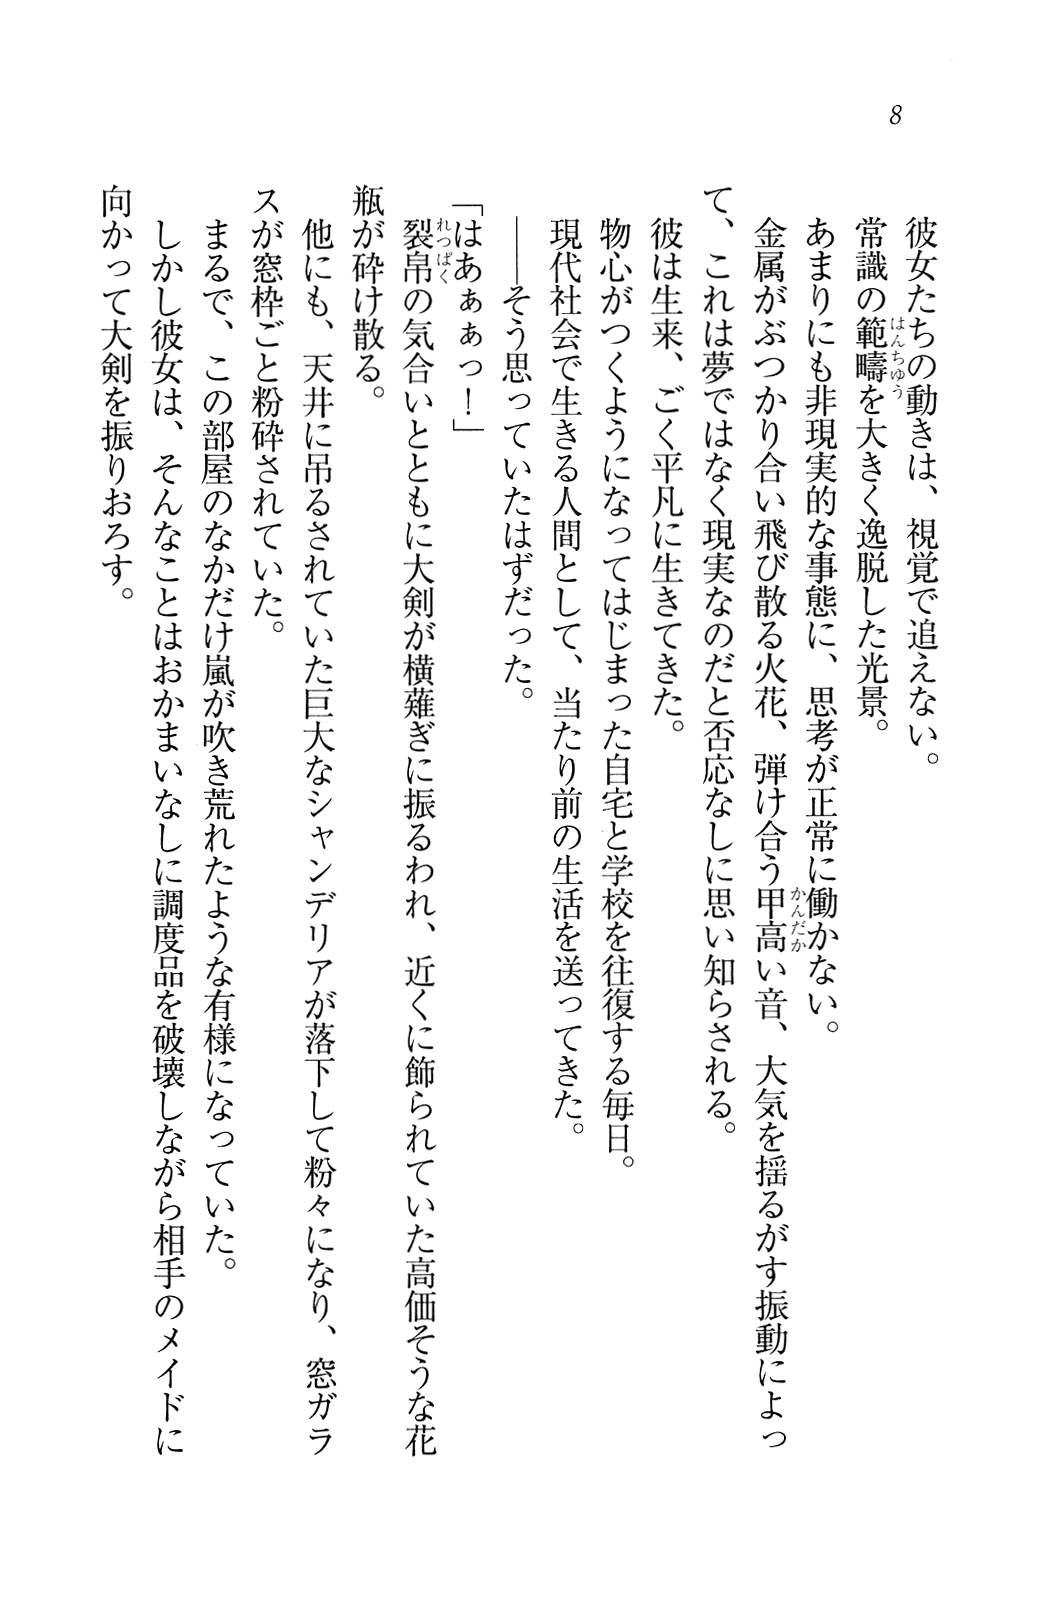 8
彼女たちの動きは、視覚で追えない。
常識の範疇を大きく逸脱した光景。
はんちゅう
あまりにも非現実的な事態に、思考が正常に働かない。
金属がぶつかり合い飛び散る火花、弾け合う甲高い音、大気を揺るがす振動によっ
かんだか
て、これは夢ではなく現実なのだと否応なしに思い知らされる。
彼は生来、ごく平凡に生きてきた。
物心がつくようになってはじまった自宅と学校を往復する毎日。
現代社会で生きる人間として、当たり前の生活を送ってきた。
――そう思っていたはずだった。
「はあぁぁっ！」
裂帛の気合いとともに大剣が横薙ぎに振るわれ、近くに飾られていた高価そうな花
れっぱく
瓶が砕け散る。
他にも、天井に吊るされていた巨大なシャンデリアが落下して粉々になり、窓ガラ
スが窓枠ごと粉砕されていた。
まるで、この部屋のなかだけ嵐が吹き荒れたような有様になっていた。
しかし彼女は、そんなことはおかまいなしに調度品を破壊しながら相手のメイドに
向かって大剣を振りおろす。